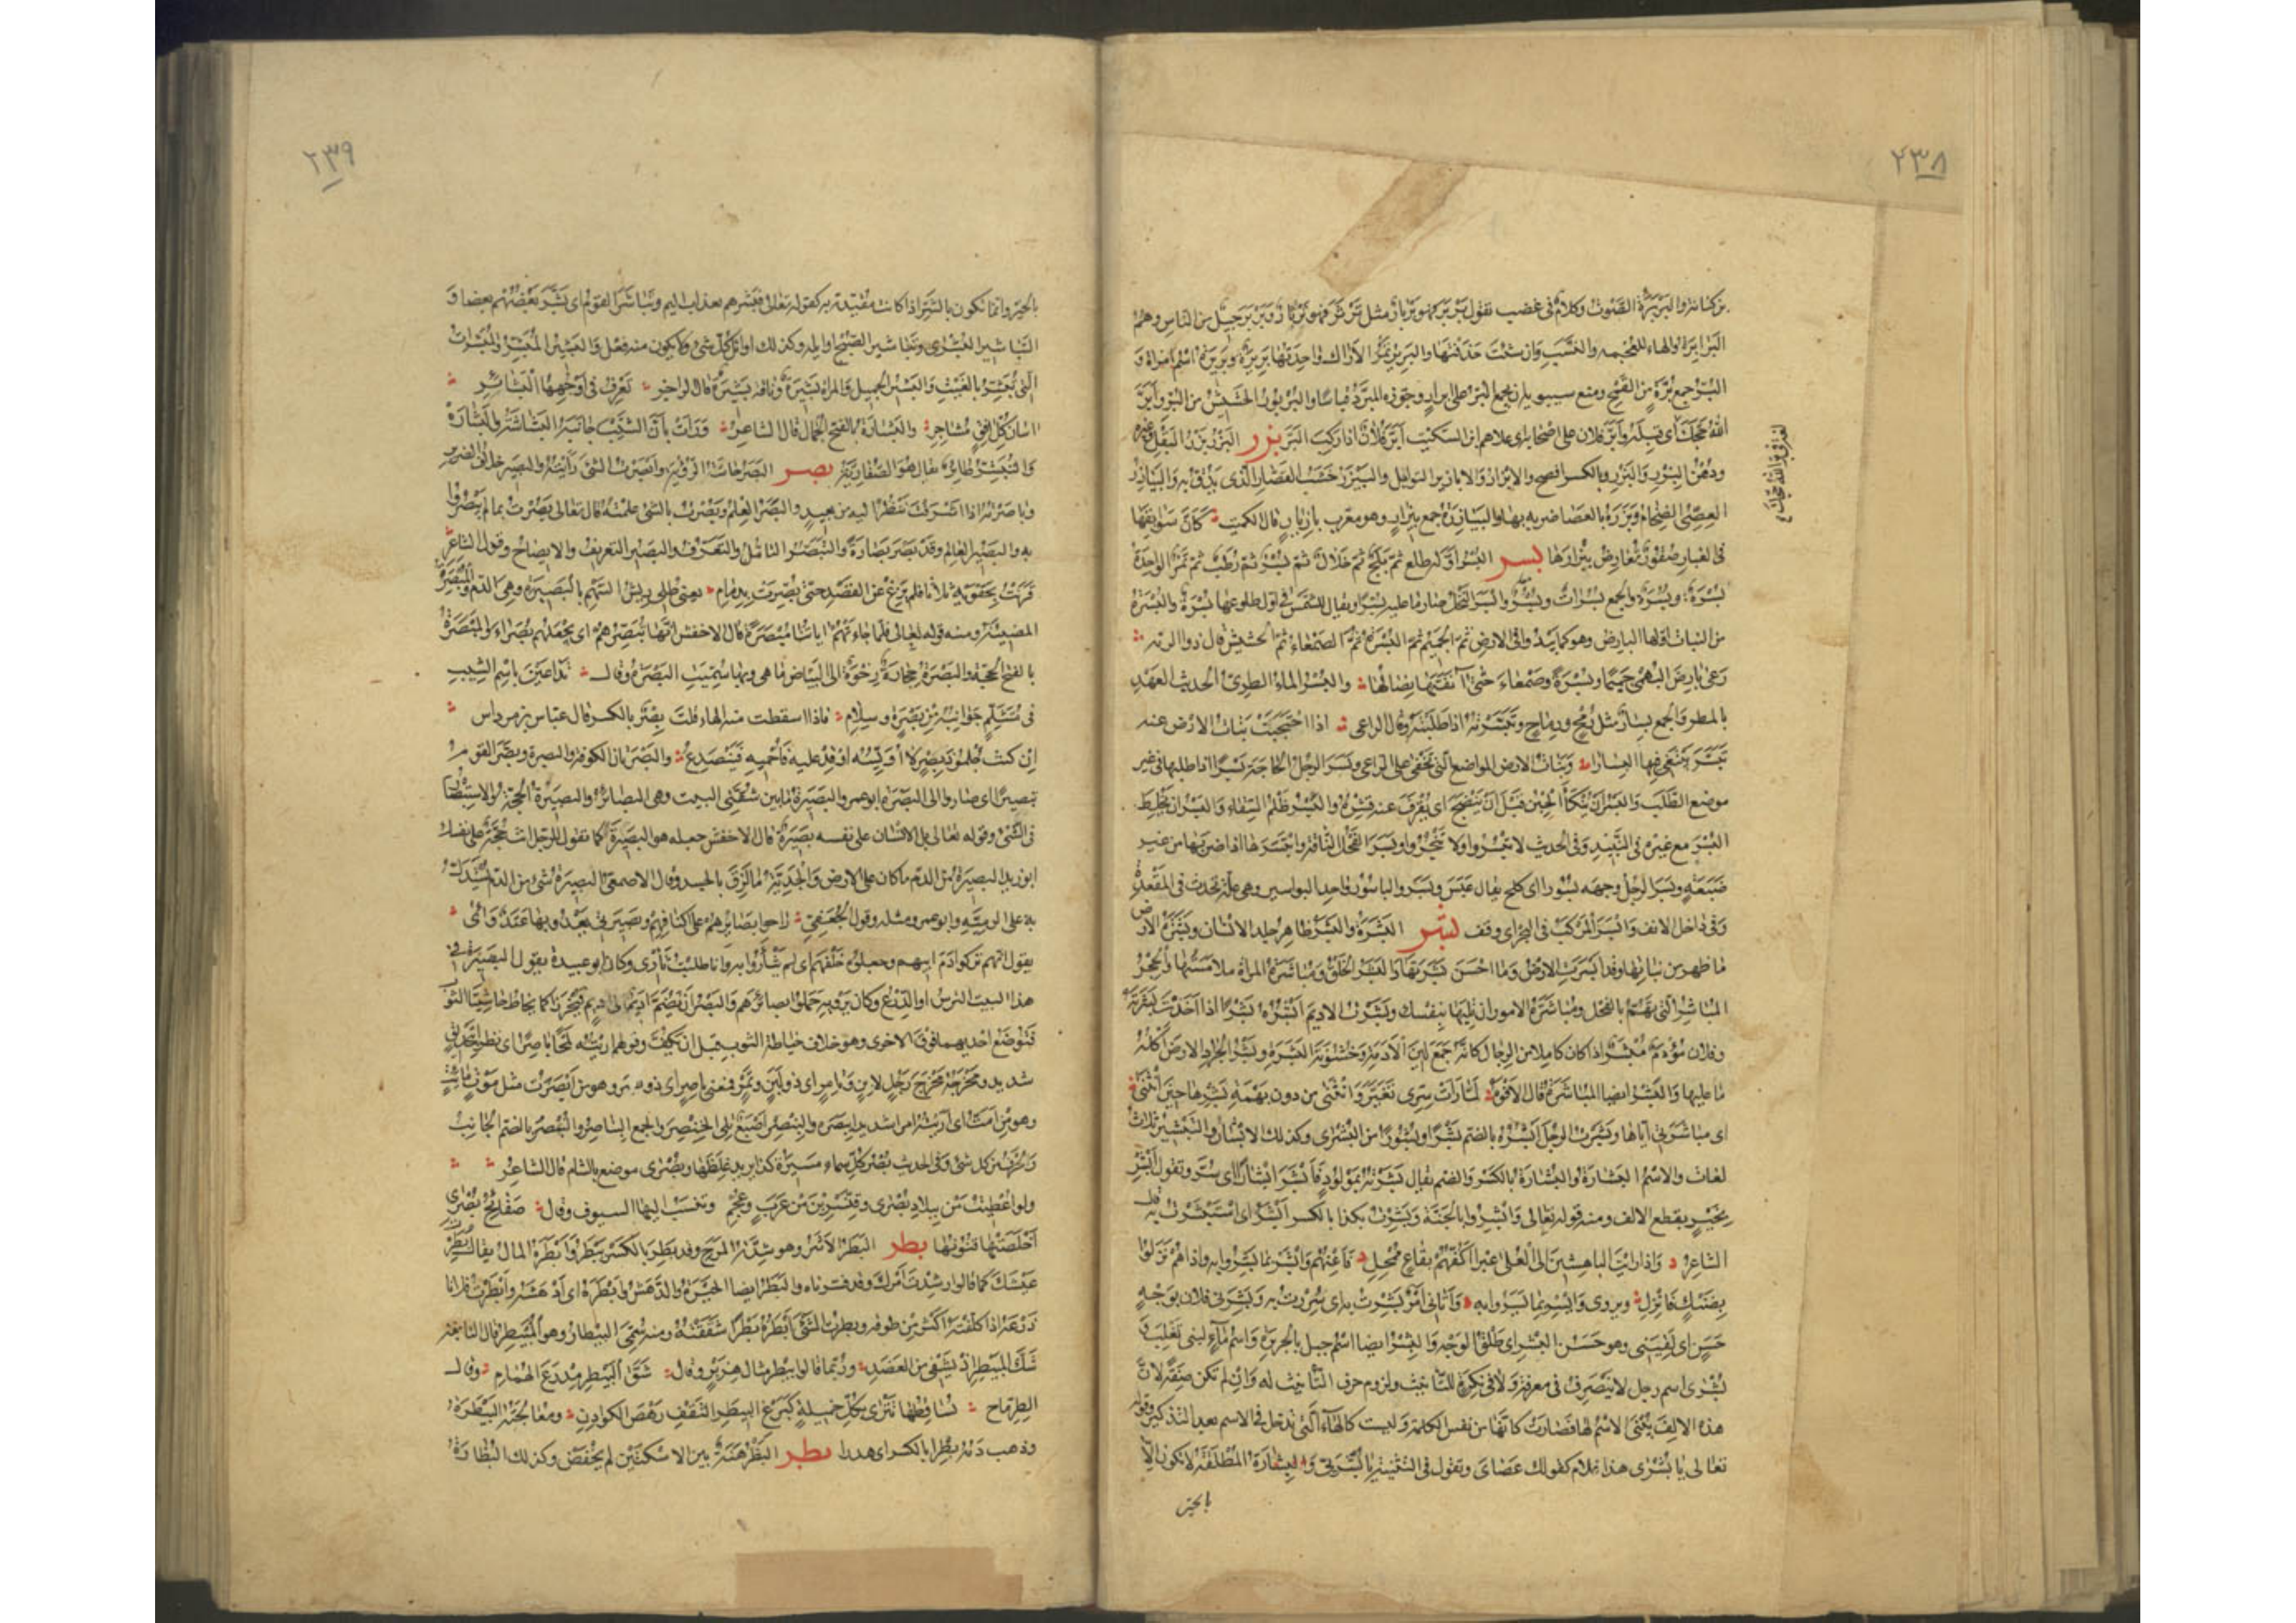 ٢٣٨
من كنانة والبربرة الصوت وكلام في غضب تقول بربر فهو بربار مثل ثرثر فهو ثرثار وبربر جيل من الناس وهم
البرابرة والهاء للعجمة والنسب وان شئت حذفتها والبرير ثمر الاراك واحدتها بريرة وبريرة اسم امراة و
البر جمع برة من القمح ومنع سيبويه ان يجمع البر على ابرار وجوزه المبرد قياسا والبربور الجشيش من البر وابر
الله حجك اي قبله وابر فلان على اصحابه اي علاهم ابن السكيت ابر فلان اذا ركب البر بزر البزر بزر البقل وغيره
ودهن البزر والبزر وبالكسر افصح والابزار والابازير التوابل والبيزر خشب القصار الذي يدق به والبيازر
العصي الضخام وبزره بالعصا ضربه بها والبيازرة جمع بيزار وهو معرب بازيار قال الكميت كان سوابقها
في الغبار صقور تعارض بيزارها بسر البسر اوله طلع ثم بلح ثم خلال ثم بسر ثم رطب ثم تمر الواحدة
بسرة وبسرة والجمع بسرات وبسر وابسر النخل صار ما عليه بسرا ويقال للشمس في اول طلوعها بسرة والبسرة
من النبات اولها البارض وهو كما يبدو في الارض ثم الجميم ثم البسرة ثم الصمعاء ثم الحشيش قال ذو الرمة
رعى بارض البهمى جميما وبسرة وصمعاء حتى آنفتها نصالها والبسر الماء الطري الحديث العهد
بالمطر والجمع بسار مثل رمح ورماح وتبسرته اذا طلبته وقال الراعي اذا احتجبت بنات الارض عنه
تبسر يبتغي فيها البسارا وبنات الارض المواضع التي تخفى على الراعي وبسر الرجل الحاجة بسرا اذا طلبها في غير
موضع الطلب والبسر ان ينكأ الحبن قبل ان ينضج اي يقرف عنه قشره والبسر ظلم السقاء والبسر ان يخلط
البسر مع غيره في النبيذ وفي الحديث لا تبسروا ولا تثجروا وبسر الفحل الناقة وابتسرها اذا ضربها من غير
ضبعة وبسر الرجل وجهه بسورا اي كلح يقال عبس وبسر والباسور واحد البواسير وهي علة تحدث في المقعدة
وفي داخل الانف وابسر المركب في البحر اي وقف بشر البشرة والبشر ظاهر جلد الانسان وبشرة الارض
ما ظهر من نباتها وقد ابشرت الارض وما احسن بشرتها والبشر الخلق ومباشرة المراة ملامستها والحجر
المباشر التي تهم بالفحل ومباشرة الامور ان تليها بنفسك وبشرت الاديم ابشره بشرا اذا اخذت بشرته
وفلان مؤدم مبشر اذا كان كاملا من الرجال كانه جمع لين الادمة وخشونة البشرة وبشر الجراد الارض اكله
ما عليها والبشر ايضا المباشرة قال الافوه لما رات سري تغير وانثنى من دون نهمة بشرها حين انثنى
اي مباشرتي اياها وبشرت الرجل ابشره بالضم بشرا وبشورا من البشرى وكذلك الابشار والتبشير ثلاث
لغات والاسم البشارة والبشارة بالكسر والضم يقال بشرته بمولود فابشر ابشارا اي سر وتقول ابشر
بخير بقطع الالف ومنه قوله تعالى وابشروا بالجنة وبشرت بكذا بالكسر ابشر اي استبشرت به قال
الشاعر واذا رايت الباهشين الى العلى غبرا اكفهم بقاع ممحل فاعنهم وابشر بما بشروا به واذا هم نزلوا
بضنك فانزل ويروى وايسر بما يسروا به واتاني امر بشرت به اي سررت به وبشرني فلان بوجه
حسن اي لقيني وهو حسن البشر اي طلق الوجه والبشر ايضا اسم جبل بالجزيرة واسم ماء لبني تغلب و
بشرى اسم رجل لا ينصرف في معرفة ولا في نكرة للتانيث ولزوم حرف التانيث له وان لم تكن صفة لان
هذه الالف يبنى الاسم لها فصارت كانها من نفس الكلمة وليست كالهاء التي تدخل في الاسم بعد التذكير وقوله
تعالى يا بشرى هذا غلام كقولك عصاى وتقول في التثنية يا بشريي والبشارة المطلقة لا تكون الا
بالخير
لغة في بر الله حجك
٢٣٩
بالخير وانما تكون بالشر اذا كانت مقيدة به كقوله تعالى فبشرهم بعذاب اليم وتباشر القوم اي بشر بعضهم بعضا و
التباشير البشرى وتباشير الصبح اوايله وكذلك اوائل كل شيء ولا يكون منه فعل والبشير المبشر والمبشرات
التي تبشر بالغيث والبشير الجميل والمراة بشيرة وناقة بشيرة قال الراجز تعرف في اوجهها البشائر
اسان كل افق مشاجر والبشارة بالفتح الجمال قال الشاعر ورات بان الشيب جانبه البشاشة والبشارة
والتبشر طائر يقال هو الصفارية بصر البصر حاسة الرؤية وابصرت الشيء رايته والبصير خلاف الضرير
وباصرته اذا اشرفت تنظر اليه من بعيد والبصر العلم وبصرت بالشيء علمته قال تعالى بصرت بما لم يبصروا
به والبصير العالم وقد بصر بصارة والتبصر التامل والتعرف والتبصير التعريف والايضاح وقول الشاعر
قرنت بحقويه ثلاثا فلم يزغ عن القصد حتى بصرت بدمام يعني طلى ريش السهم بالبصيرة وهي الدم والمبصرة
المضيئة ومنه قوله تعالى فلما جاءتهم اياتنا مبصرة قال الاخفش انها تبصرهم اي تجعلهم بصراء والمبصرة
بالفتح الحجة والبصرة حجارة رخوة الى البياض ما هي وبها سميت البصرة وقال تداعين باسم الشيب
في متثلم جوانبه من بصرة وسلام فاذا اسقطت منه الهاء قلت بصر بالكسر قال عباس بن مرداس
ان كنت جلمود بصر لا اوبسه اوقد عليه فاحميه فينصدع والبصرتان الكوفة والبصرة وبصر القوم
تبصيرا اي صاروا الى البصرة ابو عمرو البصيرة ما بين شقتي البيت وهي البصائر والبصيرة الحجة والاستبصار
في الشيء وقوله تعالى بل الانسان على نفسه بصيرة قال الاخفش جعله هو البصيرة كما تقول للرجل انت حجة على نفسك
ابو زيد البصيرة من الدم ما كان على الارض والجدية ما لزق بالجسد وقال الاصمعي البصيرة شيء من الدم يستدل
به على الرمية وابو عمرو مثله وقول الجعفي راحوا بصايرهم على اكتافهم وبصيرتي يعدو بها عتد واى
يقول انهم تركوا دم ابيهم وجعلوه خلفهم اي لم يثاروا به وانا طلبت ثاري وكان ابو عبيدة يقول البصيرة في
هذا البيت الترس او الدرع وكان يرويه حملوا بصائرهم والبصر ان تضم اديم الى اديم فيخرزا كما يخاط حاشيتا الثوب
فتوضع احديهما فوق الاخرى وهو خلاف خياطة الثوب قبل ان تكف وقولهم اريته لمحا باصرا اي نظرا بتحديق
شديد ومخرجه مخرج رجل لابن وتامر اي ذو لبن وتمر فمعنى باصر اي ذو بصر وهو من ابصرت مثل موت مائت
وهو من امت اي اريته امرا شديدا يبصره والبنصر اصبع تلي الخنصر والجمع البناصر والبصر بالضم الجانب
والحرف من كل شيء وفي الحديث بصر كل سماء مسيرة كذا يريد غلظها وبصرى موضع بالشام قال الشاعر
ولو اعطيت من ببلاد بصرى وقنسرين من عرب وعجم وتنسب اليها السيوف وقال صفايح بصرى
اخلصتها قيونها بطر البطر الاشر وهو شدة المرح وقد بطر بالكسر يبطر وابطره المال يقال بطرت
عيشك كما قالوا رشدت امرك وقد فسرناه والبطر ايضا الحيرة والدهش وابطره اي ادهشه وابطرت فلانا
ذرعه اذا كلفته اكثر من طوقه وبطرت الشيء ابطره بطرا شققته ومنه سمي البيطار وهو المبيطر قال النابغة
شك المبيطر اذ يشفي من العضد وربما قالوا بيطر مثال هزبر وقال شق البيطر مدرع الهمام وقال
الطرماح تساقطها تترى بكل خميلة كبزغ البيطر الثقف رهص الكوادن ومعالجته البيطرة
وذهب دمه بطرا بالكسر اي هدرا بظر البظر هنة بين الاسكتين لم يخفض وكذلك البظارة